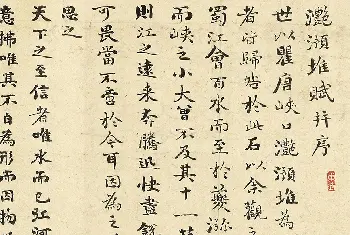 灩澦堆賦并序
世以瞿唐峽口灩澦堆為
者皆歸咎於此石以余觀之
蜀江會百水而至於夔瀰
而峽之小大曾不及其十一苟
則江之遠來奔騰迅快盡銳
可畏當不啻於今耳因為之
思之
天下之至信者唯水而已江河
意揣唯其不自為形而因物以